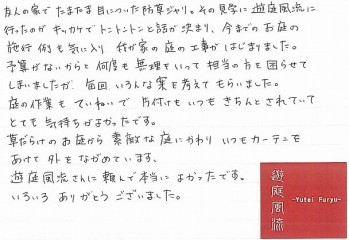 友人の家で たまたま目についた防草ジャリ。その見学に遊庭風流に
行ったのが キッカケで トントントンと話が決まり、今までのお庭の
施行例も気に入り 我が家の庭の工事がはじまりました。
予算がないからと何度も無理をいって相手の方を困らせて
しまいましたが 毎回、いろんな案を考えてもらいました。
庭の作業も ていねいで 片付けも いつも きちんとされていて
とても 気持ちがよかったです。
草だらけのお庭から 素敵な庭にかわり いつもカーテンを
あけて 外を ながめています。
遊庭風流さんに頼んで本当に よかったです。
いろいろ ありがとう ございました。
遊庭風流
-Yutei Furyu-